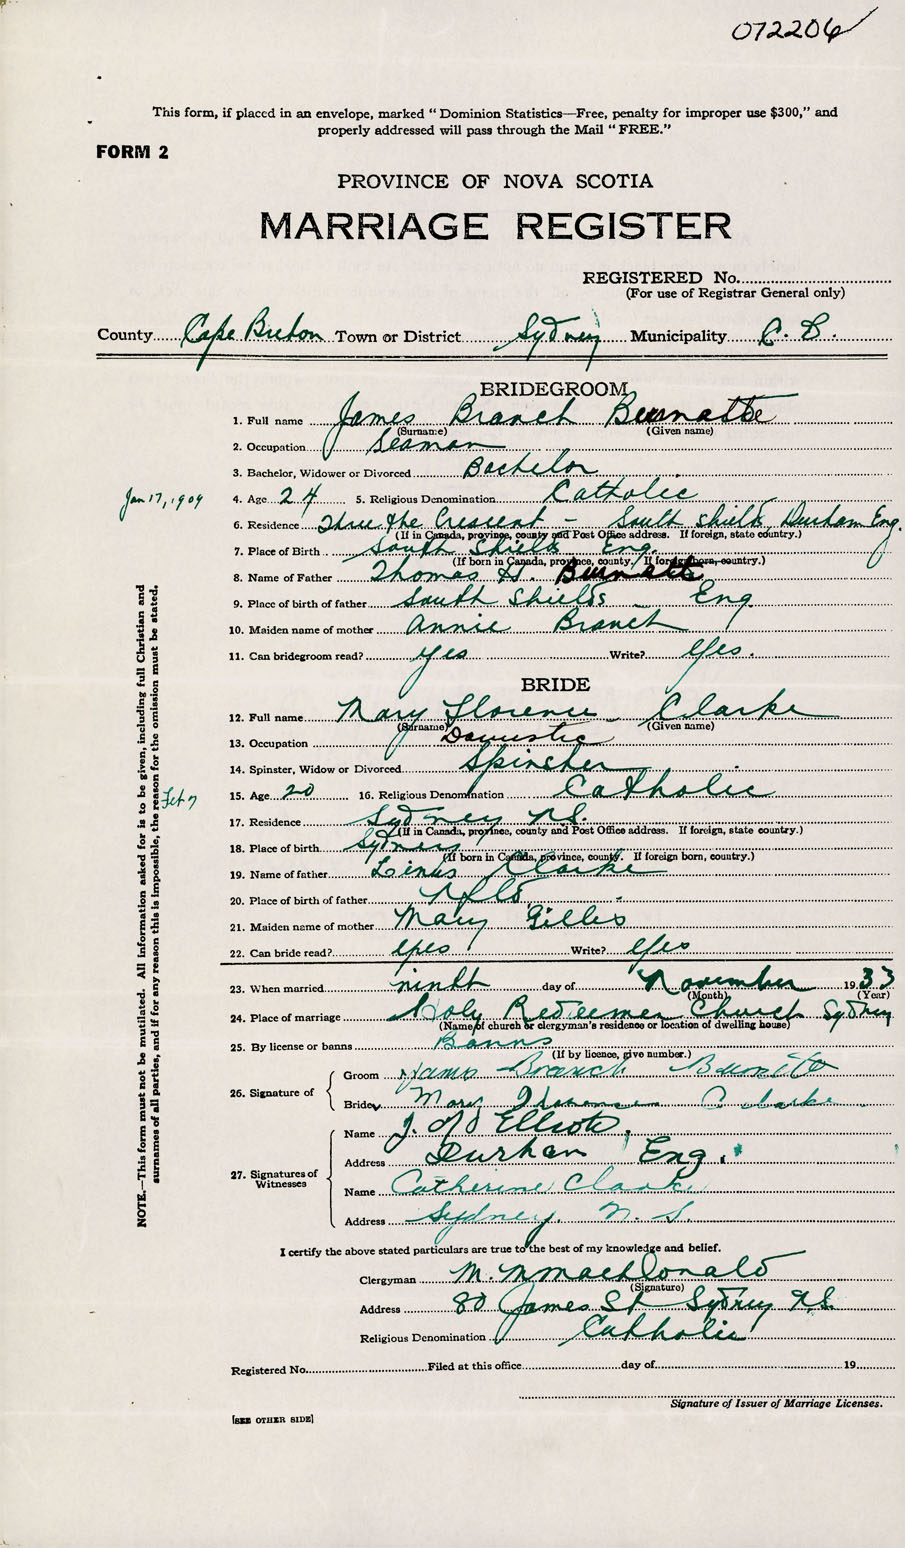 072206
This form, if placed in an envelope, marked "Dominion Statistics—Free, penalty for improper use $300," and
properly addressed will pass through the Mail "FREE."
FORM 2
PROVINCE OF NOVA SCOTIA
MARRIAGE REGISTER
REGISTERED No.
(For use of Registrar General only)
County Cape Breton Town or District Sydney Municipality C. B.
BRIDEGROOM
1. Full name James Branch
(Surname) (Given name)
2. Occupation Seaman
3. Bachelor, Widower or Divorced Bachelor
Jan 17, 1909 4. Age 24 5. Religious Denomination Catholic
6. Residence Three the Crescent - South Shields Durham Eng.
(If in Canada, province, county and Post Office address. If foreign, state country.)
7. Place of Birth South Shields Eng.
(If born in Canada, province, county. If foreign born, country.)
8. Name of Father Thomas H.
9. Place of birth of father South Shields - Eng
10. Maiden name of mother Annie Branch
11. Can bridegroom read? yes Write? Yes.
BRIDE
12. Full name Mary Florence Clarke
(Surname) (Given name)
13. Occupation Domestic
14. Spinster, Widow or Divorced Spinster
Feb 7 15. Age 20 16. Religious Denomination Catholic
17. Residence Sydney N.S.
(If in Canada, province, county and Post Office address. If foreign, state country.)
18. Place of birth Sydney
(If born in Canada, province, county. If foreign born, country.)
19. Name of father Linus Clarke
20. Place of birth of father Nfld.
21. Maiden name of mother Mary Gillis
22. Can bride read? Yes Write? Yes
23. When married ninth day of November 1933
(Month) (Year)
24. Place of marriage Holy Redeemer Church Sydney
(Name of church or clergyman's residence or location of dwelling house)
25. By license or banns Banns
(If by licence, give number.)
26. Signature of
Groom James Branch
Bride Mary Florence Clarke
27. Signatures of Witnesses
Name J. Elliott
Address Durham Eng.
Name Catherine Clarke
Address Sydney, N. S.
I certify the above stated particulars are true to the best of my knowledge and belief.
Clergyman M. MacDonald
(Signature)
Address 80 James St Sydney N.S.
Religious Denomination Catholic
Registered No. Filed at this office day of 19
Signature of Issuer of Marriage Licenses.
[SEE OTHER SIDE]
NOTE.—This form must not be mutilated. All information asked for is to be given, including full Christian and
surnames of all parties, and if for any reason this is impossible, the reason for the omission must be stated.